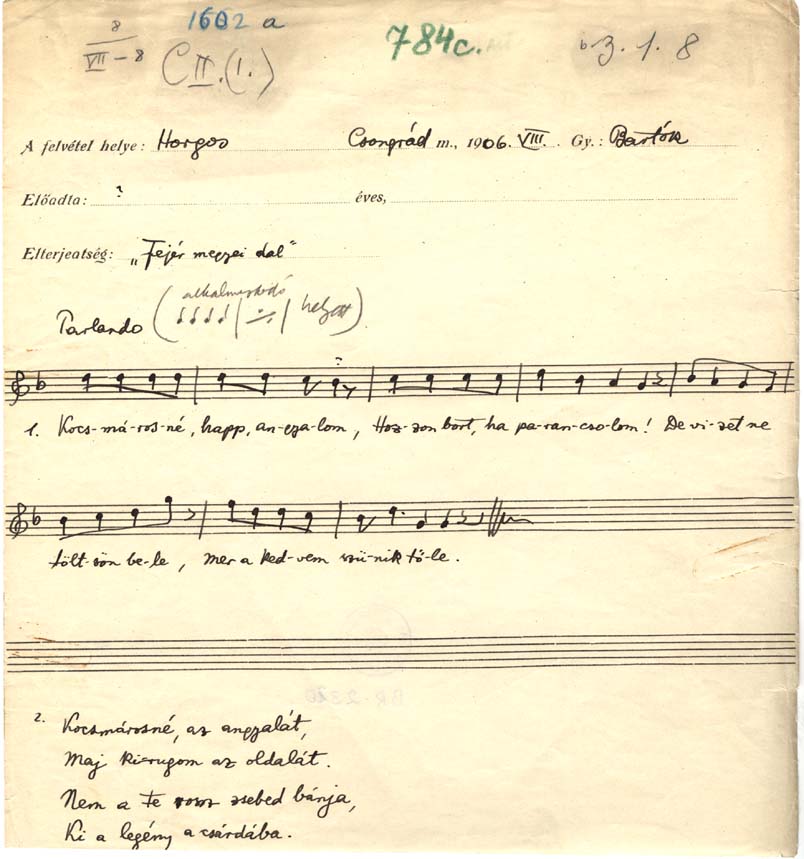 8 1602 a 784c. b 3. 1. 8
VII – 8 C II. (1.)
A felvétel helye: Horgos Csongrád m., 1906. VIII. Gy.: Bartók
Előadta: ? éves,
Elterjeatség: „Fejér megyei dal"
alkalmazkodó
Parlando ( helyett )
1. Kocs-má-ros-né, happ, an-gya-lom, Hoz-zon bort, ha pa-ran-cso-lom! De vi-zet ne
tölt-sön be-le, mer a ked-vem szű-nik tő-le.
BR-2320
2. Kocsmárosné, az angyalát,
Maj ki-rugom az oldalát.
Nem a te zsebed bánja,
Ki a legény a csárdába.